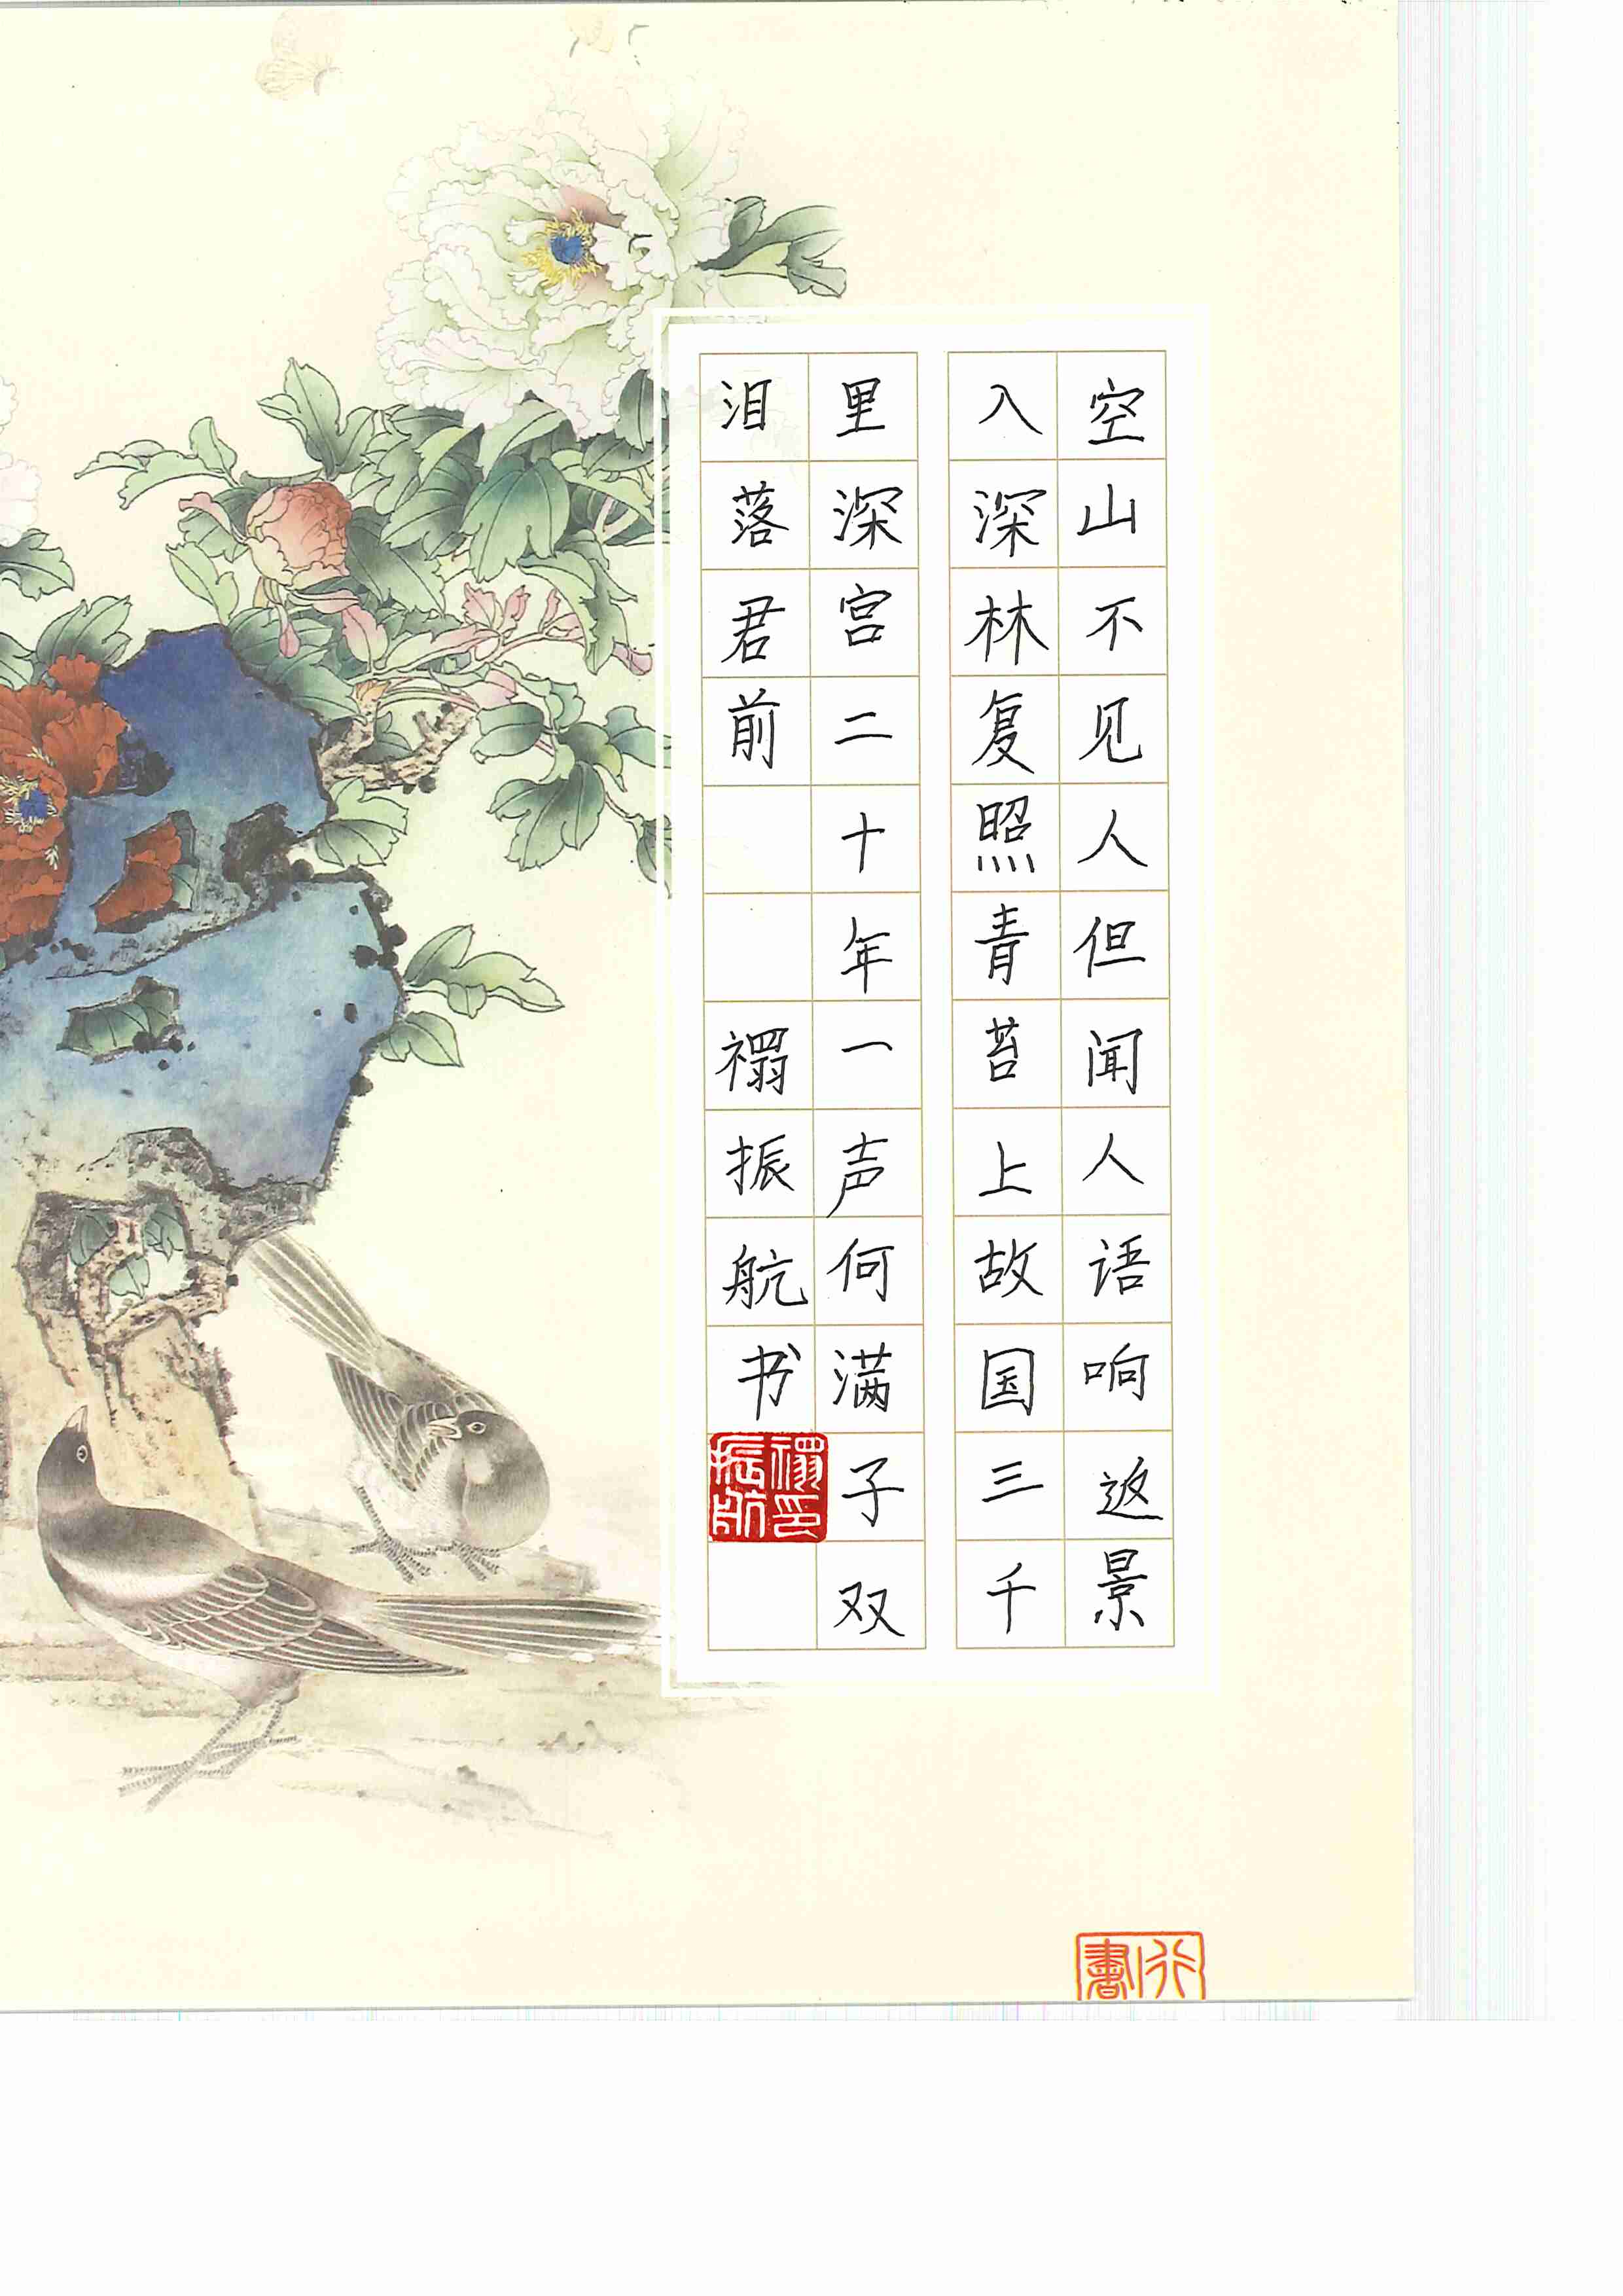 空山不见人但闻人语响返景
入深林复照青苔上故国三千
里深宫二十年一声何满子双
泪落君前 禤振航书
禤印振航
行書